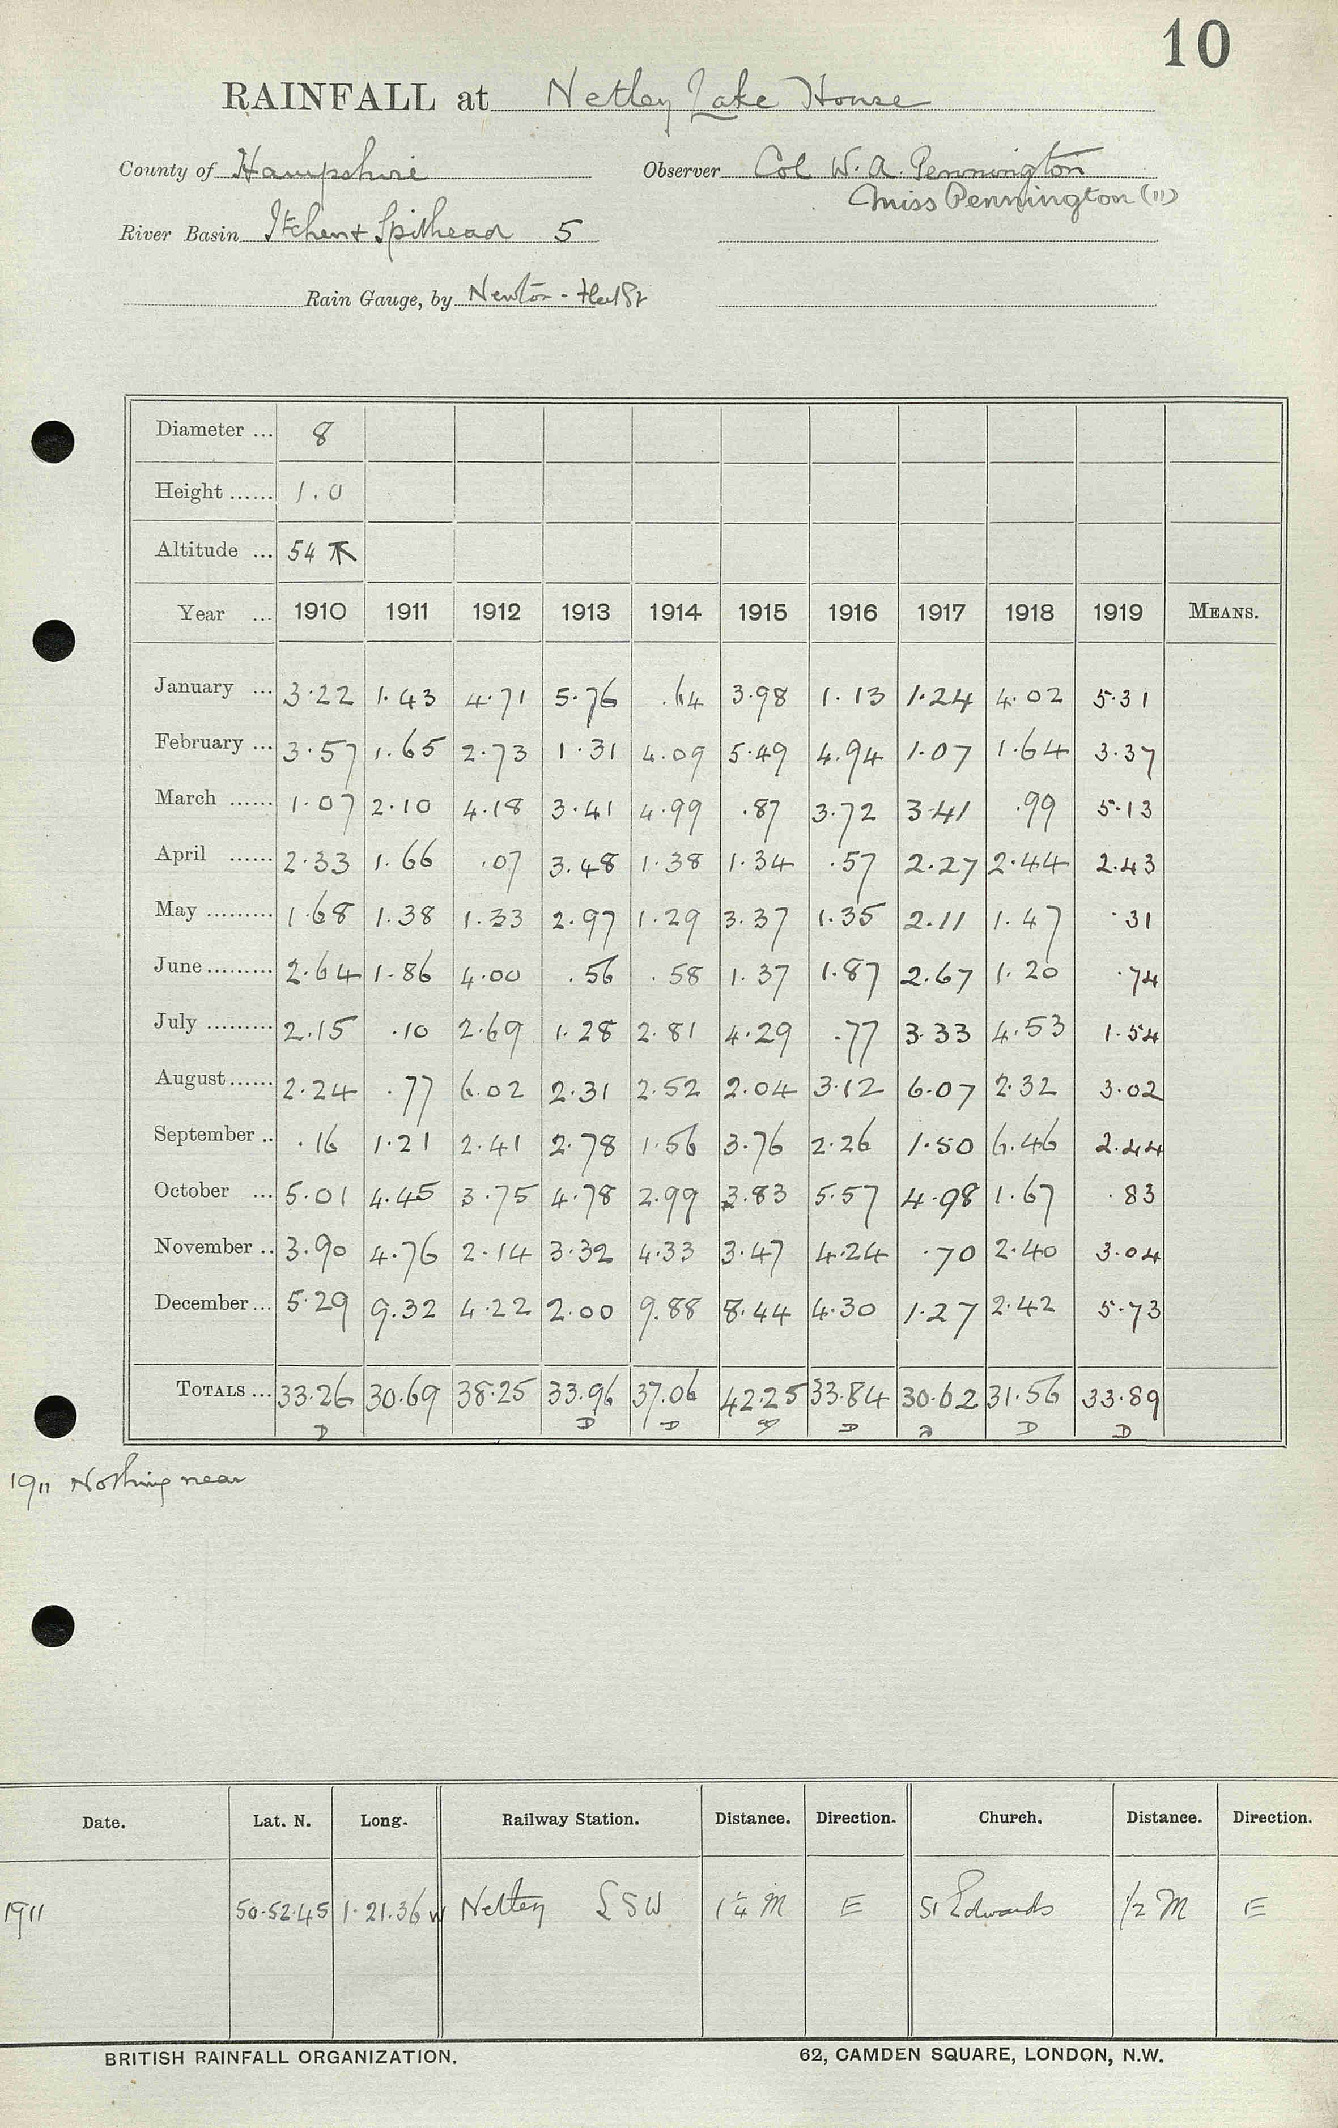 10
RAINFALL at Netley Lake House
County of Hampshire Observer Col W. A. Pennington
Miss Pennington (11)
River Basin Itchen + Spithead 5
Rain Gauge, by Newton -
Diameter ... 8
Height ...... 1.0
Altitude ... 54
Year ... 1910 1911 1912 1913 1914 1915 1916 1917 1918 1919 MEANS.
January ... 3.22 1.43 4.71 5.76 .64 3.98 1.13 1.24 4.02 5.31
February ... 3.57 1.65 2.73 1.31 4.09 5.49 4.94 1.07 1.64 3.37
March ...... 1.07 2.10 4.18 3.41 4.99 .87 3.72 3.41 .99 5.13
April ...... 2.33 1.66 .07 3.48 1.38 1.34 .57 2.27 2.44 2.43
May ......... 1.68 1.38 1.33 2.97 1.29 3.37 1.35 2.11 1.47 .31
June ......... 2.64 1.86 4.00 .56 .58 1.37 1.87 2.67 1.20 .74
July ......... 2.15 .10 2.69 1.28 2.81 4.29 .77 3.33 4.53 1.54
August ...... 2.24 .77 6.02 2.31 2.52 2.04 3.12 6.07 2.32 3.02
September .. .16 1.21 2.41 2.78 1.56 3.76 2.26 1.50 6.46 2.44
October ... 5.01 4.45 3.75 4.78 2.99 3.83 5.57 4.98 1.67 .83
November .. 3.90 4.76 2.14 3.32 4.33 3.47 4.24 .70 2.40 3.04
December ... 5.29 9.32 4.22 2.00 9.88 8.44 4.30 1.27 2.42 5.73
TOTALS ... 33.26 30.69 38.25 33.96 37.06 42.25 33.84 30.62 31.56 33.89
D D D D D D D D
1911 Nothing near
Date. Lat. N. Long. Railway Station. Distance. Direction. Church. Distance. Direction.
1911 50.52.45 1.21.36 W Netley LSW 1¼ M E St Edwards 1/2 M E
BRITISH RAINFALL ORGANIZATION. 62, CAMDEN SQUARE, LONDON, N.W.